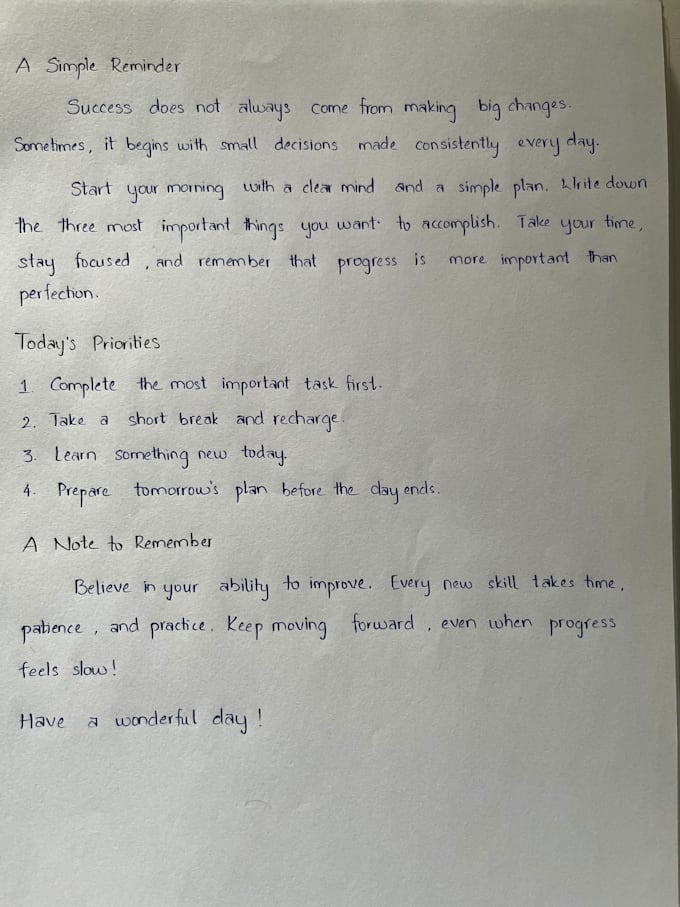 A Simple Reminder
Success does not always come from making big changes.
Sometimes, it begins with small decisions made consistently every day.
Start your morning with a clear mind and a simple plan. Write down
the three most important things you want to accomplish. Take your time,
stay focused, and remember that progress is more important than
perfection.
Today's Priorities
1. Complete the most important task first.
2. Take a short break and recharge.
3. Learn something new today.
4. Prepare tomorrow's plan before the day ends.
A Note to Remember
Believe in your ability to improve. Every new skill takes time,
patience, and practice. Keep moving forward, even when progress
feels slow!
Have a wonderful day!